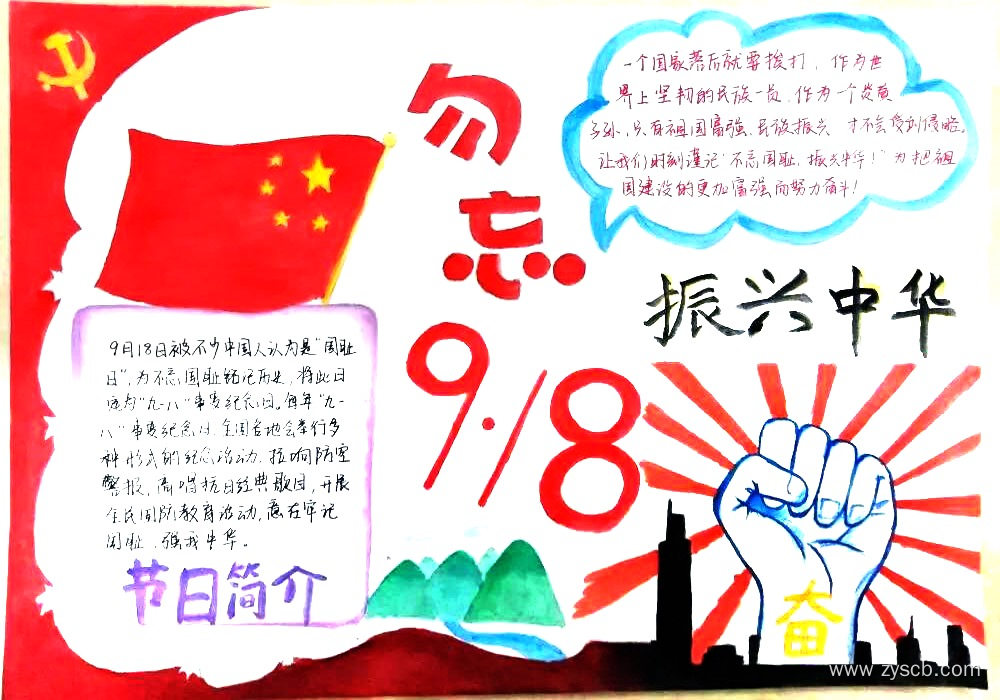 勿忘
9·18
一个国家落后就要挨打，作为世
界上坚韧的民族一员，作为一个炎黄
子孙，只有祖国富强、民族振兴 才不会受到侵略。
让我们时刻谨记“不忘国耻，振兴中华！”为把祖
国建设的更加富强而努力奋斗！
振兴中华
9月18日被不少中国人认为是“国耻
日”，为不忘国耻铭记历史，将此日
定为“九一八”事变纪念日。每年“九一
八”事变纪念日，全国各地会举行多
种形式的纪念活动，拉响防空
警报，高唱抗日经典歌目，开展
全民国防教育活动，意在牢记
国耻、强我中华。
节日简介
奋
www.zyscb.com